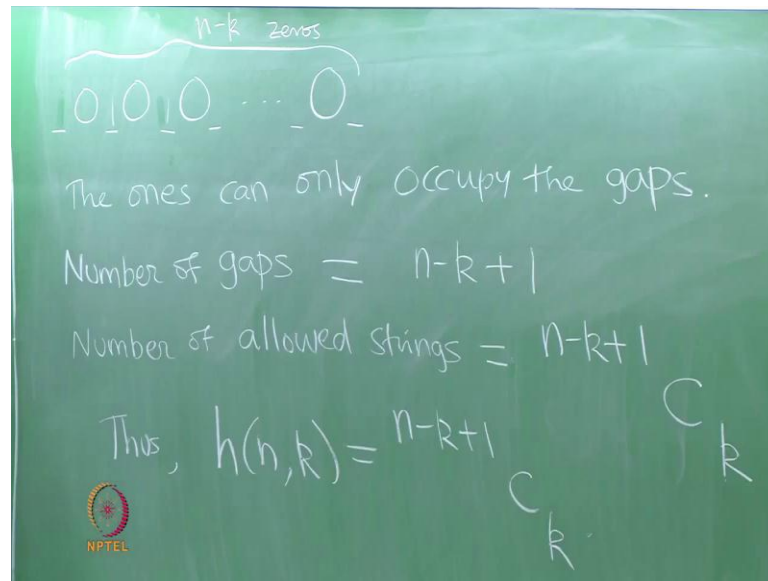 n-k zeros
_0_1_0_1_0_ ... _0_
The ones can only occupy the gaps.
Number of gaps = n-k+1
Number of allowed strings = n-k+1 C k
Thus, h(n,k) = n-k+1 C k.
NPTEL